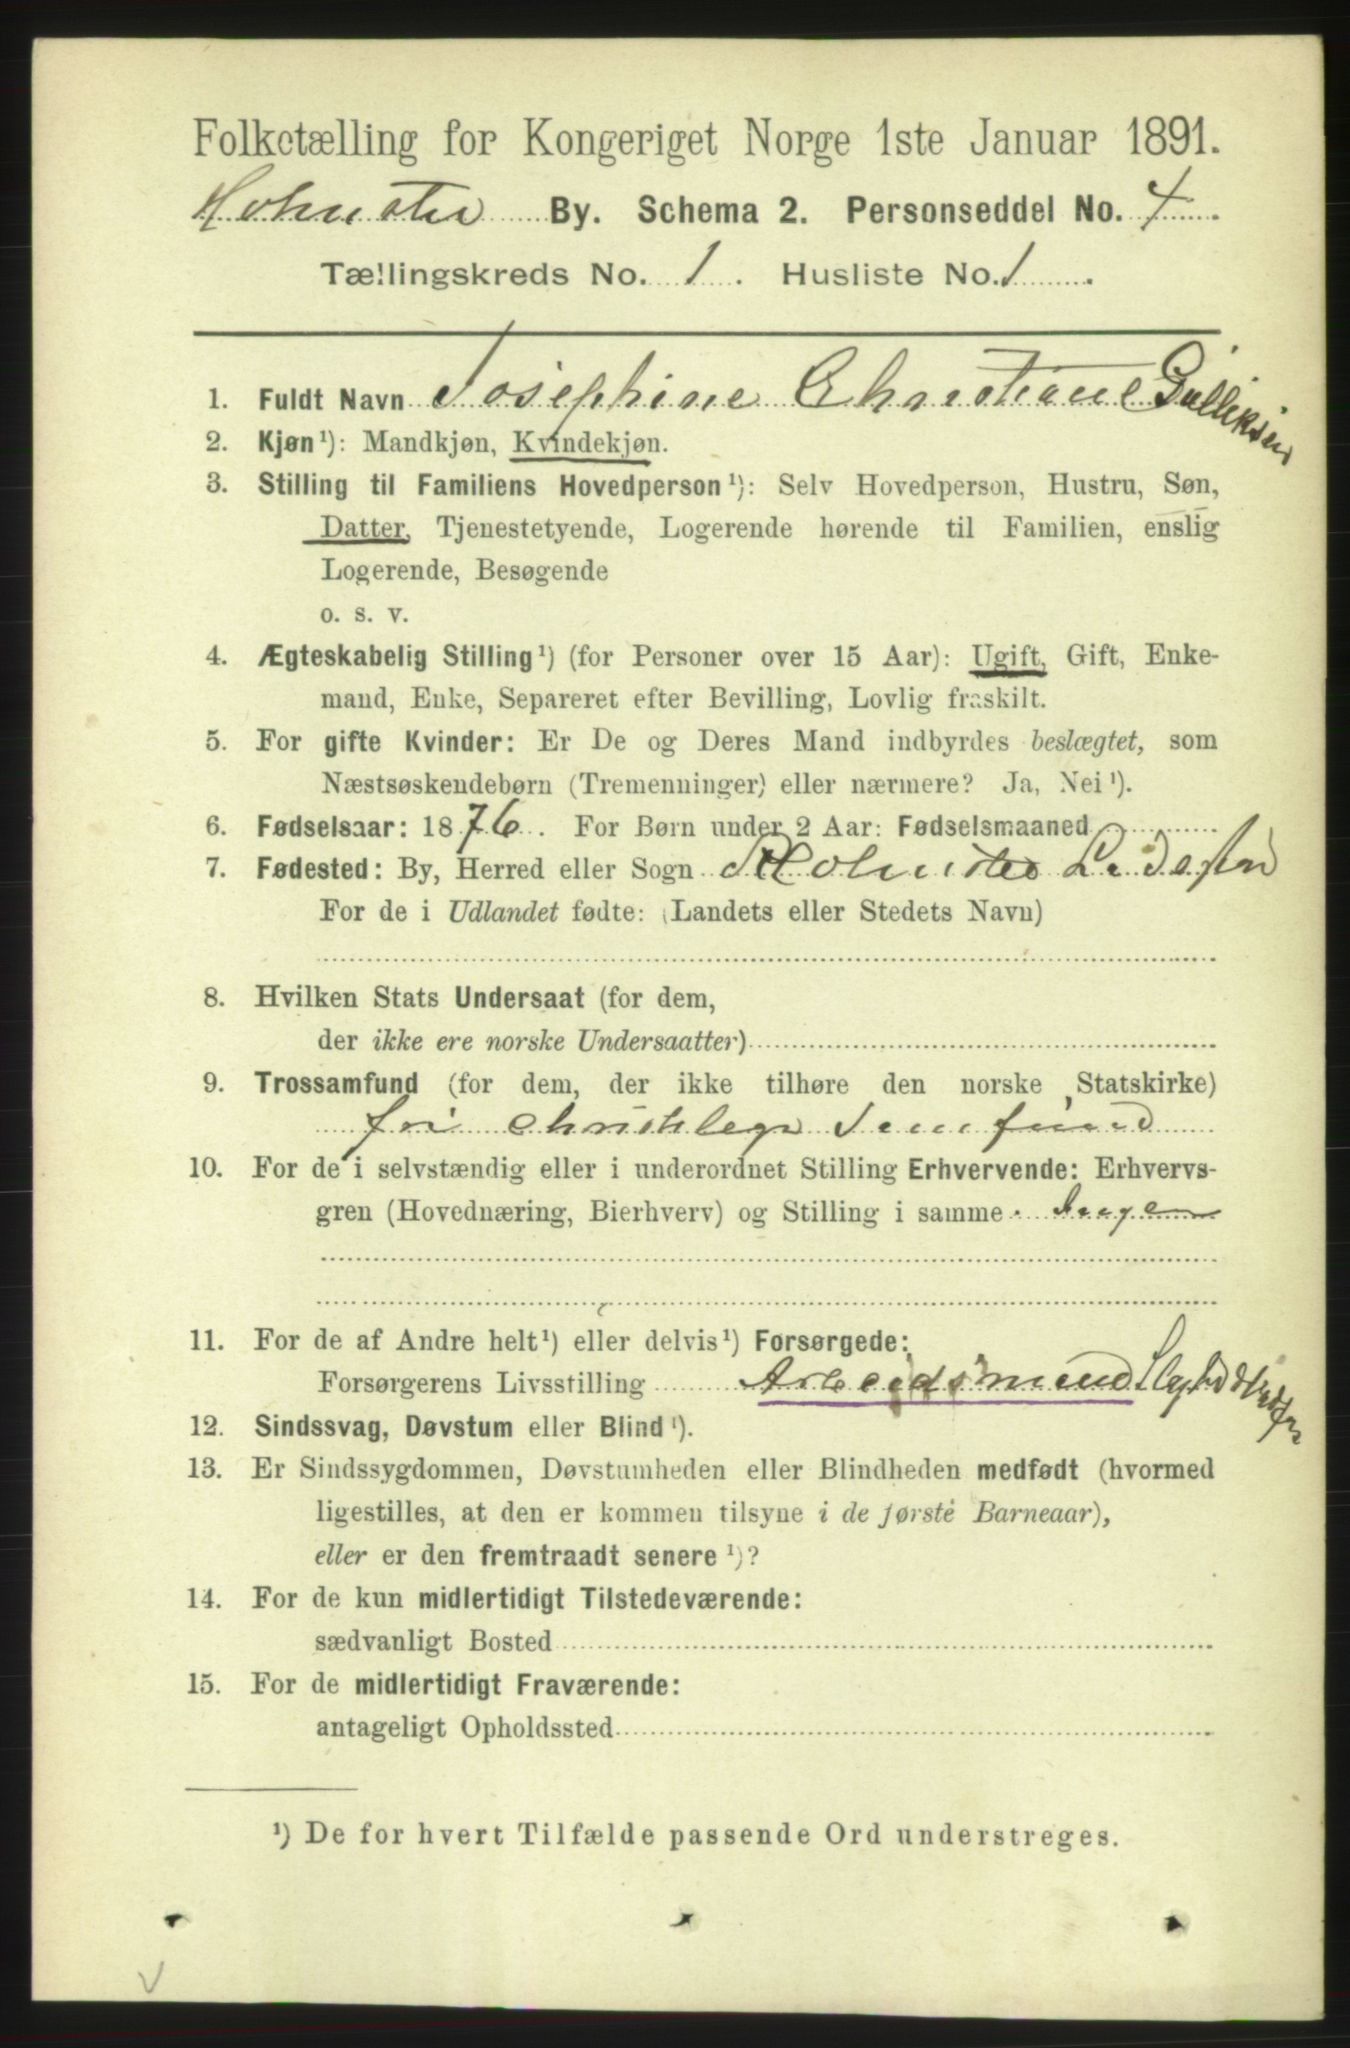 Folketælling for Kongeriget Norge 1ste Januar 1891.
Holmstr By. Schema 2. Personseddel No. 4
Tællingskreds No. 1. Husliste No. 1
1. Fuldt Navn Josephine Christiane Gulliksen
2. Kjøn¹): Mandkjøn, Kvindekjøn.
3. Stilling til Familiens Hovedperson¹): Selv Hovedperson, Hustru, Søn,
Datter, Tjenestetyende, Logerende hørende til Familien, enslig
Logerende, Besøgende
o. s. v.
4. Ægteskabelig Stilling¹) (for Personer over 15 Aar): Ugift, Gift, Enke-
mand, Enke, Separeret efter Bevilling, Lovlig fraskilt.
5. For gifte Kvinder: Er De og Deres Mand indbyrdes beslægtet, som
Næstsøskendebørn (Tremenninger) eller nærmere? Ja, Nei¹).
6. Fødselsaar: 1876. For Børn under 2 Aar: Fødselsmaaned
7. Fødested: By, Herred eller Sogn
For de i Udlandet fødte: (Landets eller Stedets Navn)
8. Hvilken Stats Undersaat (for dem,
der ikke ere norske Undersaatter)
9. Trossamfund (for dem, der ikke tilhøre den norske Statskirke)
fri christelege Samfund
10. For de i selvstændig eller i underordnet Stilling Erhvervende: Erhvervs-
gren (Hovednæring, Bierhverv) og Stilling i samme. Ingen
11. For de af Andre helt¹) eller delvis¹) Forsørgede:
Forsørgerens Livsstilling Arbeidsmand
12. Sindssvag, Døvstum eller Blind¹).
13. Er Sindssygdommen, Døvstumheden eller Blindheden medfødt (hvormed
ligestilles, at den er kommen tilsyne i de første Barneaar),
eller er den fremtraadt senere¹)?
14. For de kun midlertidigt Tilstedeværende:
sædvanligt Bosted
15. For de midlertidigt Fraværende:
antageligt Opholdssted
¹) De for hvert Tilfælde passende Ord understreges.